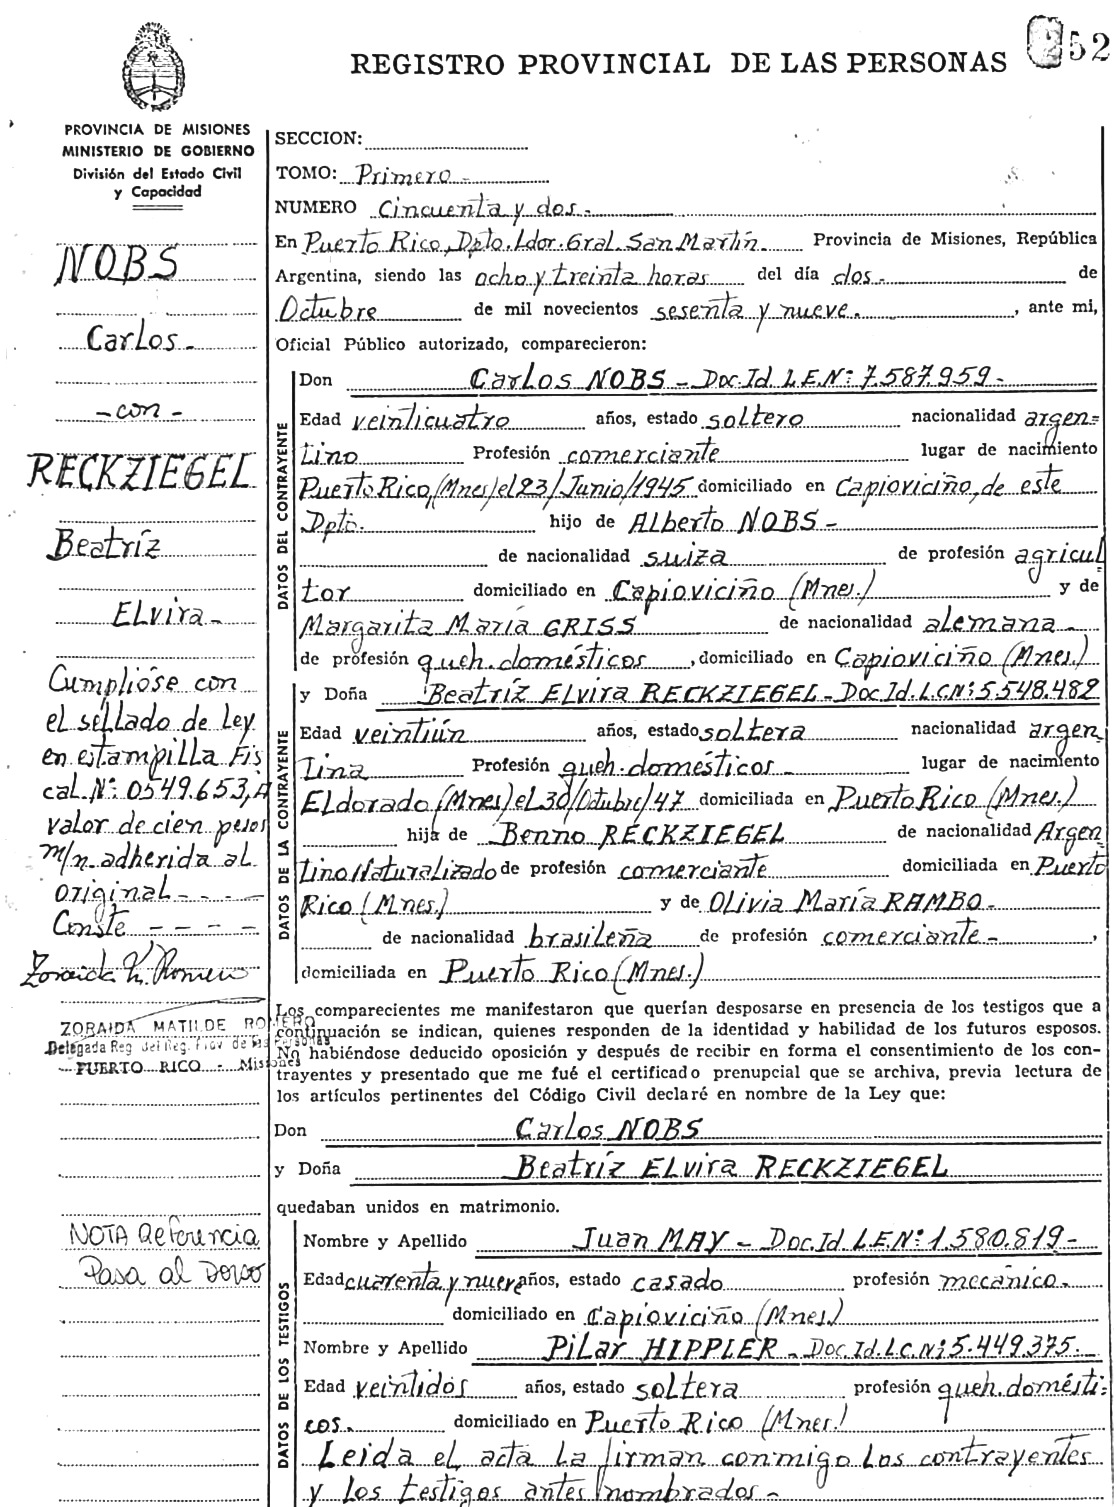 REGISTRO PROVINCIAL DE LAS PERSONAS
52
PROVINCIA DE MISIONES
MINISTERIO DE GOBIERNO
División del Estado Civil
y Capacidad
NOBS
Carlos -
- con -
RECKZIEGEL
Beatríz
ELvira -
Cumplióse con
el sellado de Ley
en estampilla Fis
cal Nº 0549.653, A
valor de cien pesos
m/n adherida al
original - - - -
Conste - - - -
ZORAIDA MATILDE ROMERO
Delegada Reg del Reg. Prov de las Personas
PUERTO RICO - Misiones
NOTA Referencia
Pasa al Dorso
SECCION:
TOMO: Primero -
NUMERO Cincuenta y dos -
En Puerto Rico, Dpto. Ldor. Gral. San Martín. Provincia de Misiones, República
Argentina, siendo las ocho y treinta horas del día dos - de
Octubre de mil novecientos sesenta y nueve. , ante mi,
Oficial Público autorizado, comparecieron:
DATOS DEL CONTRAYENTE
Don Carlos NOBS - Doc. Id. L.E. Nº 7.587.959 -
Edad veinticuatro años, estado soltero nacionalidad argen=
tino Profesión comerciante lugar de nacimiento
Puerto Rico, (Mnes) el 23/Junio/1945 domiciliado en Capiovíciño, de este
Dpto. hijo de Alberto NOBS -
de nacionalidad suiza de profesión agricul=
tor domiciliado en Capioviciño (Mnes.) y de
Margarita María GRISS de nacionalidad alemana -
de profesión queh. domésticos , domiciliado en Capioviciño (Mnes.)
DATOS DE LA CONTRAYENTE
y Doña Beatríz ELvira RECKZIEGEL - Doc. Id. L.C. Nº 5.548.482
Edad veintiún años, estado soltera nacionalidad argen
tina Profesión queh. domésticos - lugar de nacimiento
Eldorado (Mnes) el 30/Octubre/47 domiciliada en Puerto Rico (Mnes.)
hija de Benno RECKZIEGEL de nacionalidad Argen
tino Naturalizado de profesión comerciante domiciliada en Puerto
Rico (Mnes.) y de Olivia María RAMBO -
de nacionalidad brasileña de profesión comerciante - ,
domiciliada en Puerto Rico (Mnes.)
Los comparecientes me manifestaron que querían desposarse en presencia de los testigos que a
continuación se indican, quienes responden de la identidad y habilidad de los futuros esposos.
No habiéndose deducido oposición y después de recibir en forma el consentimiento de los con-
trayentes y presentado que me fué el certificado prenupcial que se archiva, previa lectura de
los artículos pertinentes del Código Civil declaré en nombre de la Ley que:
Don Carlos NOBS
y Doña Beatríz ELvira RECKZIEGEL
quedaban unidos en matrimonio.
DATOS DE LOS TESTIGOS
Nombre y Apellido Juan MAY - Doc. Id. L.E. Nº 1.580.819 -
Edad cuarenta y nueve años, estado casado profesión mecánico -
domiciliado en Capioviciño (Mnes.)
Nombre y Apellido Pilar HIPPLER - Doc. Id. L.C. Nº 5.449.375.
Edad veintidós años, estado soltera profesión queh. domésti=
cos. domiciliado en Puerto Rico (Mnes.)
Leida el acta la firman conmigo los contrayentes
y los testigos antes nombrados -